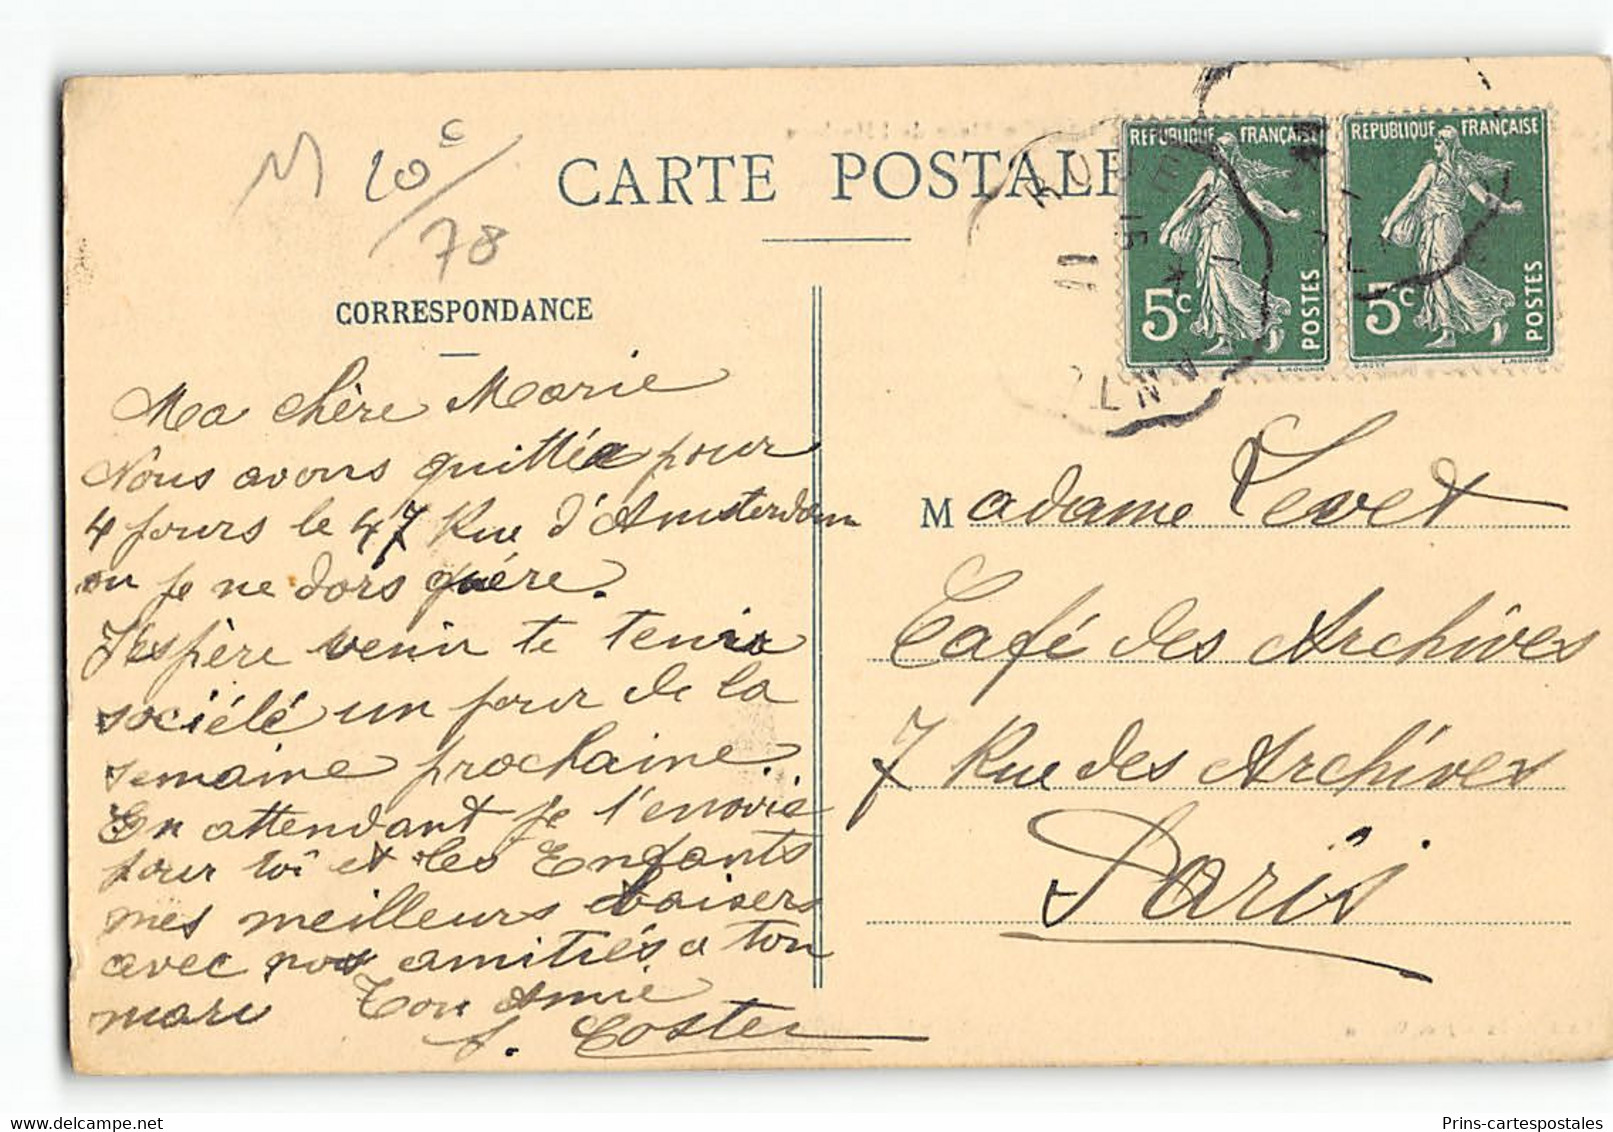 M 20c/78
CARTE POSTALE
CORRESPONDANCE
REPUBLIQUE FRANÇAISE
5c
POSTES
REPUBLIQUE FRANÇAISE
5c
POSTES
15
Ma chère Marie
Nous avons quittée pour
4 jours le 47 Rue d'Amsterdam
ou je ne dors guére.
J'espère venir te tenir
société un jour de la
semaine prochaine.
En attendant je t'envoie
pour toi et les Enfants
mes meilleurs baisers
avec nos amitiés a ton
mari Ton Amie
J. Coster
Madame Levet
Café des Archives
7 Rue des Archives
Paris
Prins-cartespostales